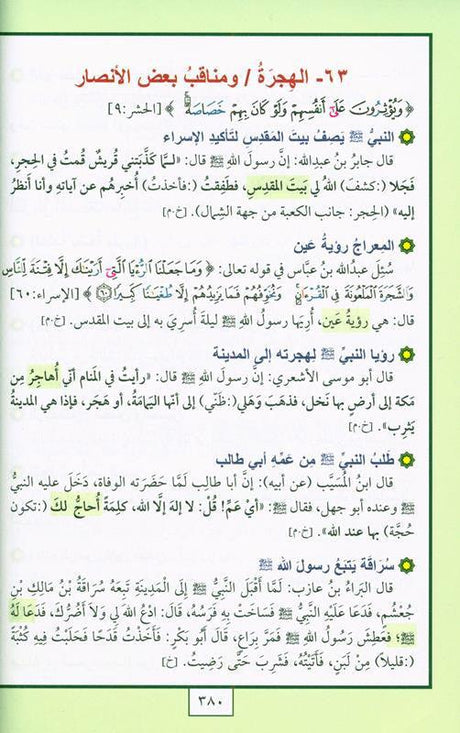 ٦٣- الهِجرَةُ / ومناقبُ بعض الأنصار
﴿ وَيُؤْثِرُونَ عَلَىٰٓ أَنفُسِهِمْ وَلَوْ كَانَ بِهِمْ خَصَاصَةٌ ﴾ [الحشر:٩]
النبيُّ ﷺ يَصِفُ بيتَ المَقدِسِ لتأكيدِ الإسراء
قال جابرُ بنُ عبدِالله: إنَّ رسولَ اللهِ ﷺ قال: «لـمَّا كذَّبَتني قُريشٌ قُمتُ في الحِجرِ،
فَجَلا (:كشفَ) اللهُ لي بَيتَ المَقدِسِ، فطَفِقتُ (:فأخذتُ) أُخبِرهُم عن آياتِهِ وأنا أنظرُ
إليه» (الحِجر: جانب الكعبة من جهة الشمال). [خ،م]
المعراجُ رؤيةُ عَين
سُئِلَ عبدُالله بنُ عبَّاس في قوله تعالى: ﴿ وَمَا جَعَلْنَا ٱلرُّءْيَا ٱلَّتِىٓ أَرَيْنَـٰكَ إِلَّا فِتْنَةً لِّلنَّاسِ
وَٱلشَّجَرَةَ ٱلْمَلْعُونَةَ فِى ٱلْقُرْءَانِ ۚ وَنُخَوِّفُهُمْ فَمَا يَزِيدُهُمْ إِلَّا طُغْيَـٰنًا كَبِيرًا ٦٠ ﴾ [الإسراء:٦٠]
قال: هي رؤيةُ عَين، أُرِيَها رسولُ الله ﷺ ليلةَ أُسرِيَ به إلى بيت المقدس. [خ،م]
رؤيا النبيِّ ﷺ لِهجرته إلى المدينة
قال أبو موسى الأشعري: إنَّ رسولَ اللهِ ﷺ قال: «رأيتُ في المَنام أنّي أُهاجِرُ مِن
مَكة إلى أرضٍ بها نَخل، فذهَبَ وَهَلي(:ظَنّي) إلى أنّها اليَمامَةُ، أو هَجَر، فإذا هي المدينةُ
يَثرِب». [خ،م]
طَلبُ النبيِّ ﷺ مِن عَمِّهِ أبي طالب
قال ابنُ المُسَيَّب (عن أبيه): إنَّ أبا طالِب لَمَّا حَضَرَته الوفاة، دَخَلَ عليه النبيُّ
ﷺ وعنده أبو جهل، فقال ﷺ: «أيْ عَمِّ! قُلْ: لا إلهَ إلَّا الله، كلِمَةً أُحاجُّ لكَ (:تكون
حُجَّة) بها عند الله». [خ،م]
سُرَاقة يَتبَعُ رسولَ الله ﷺ
قال البَراءُ بنُ عازِب: لَمَّا أَقْبَلَ النَّبِيُّ ﷺ إِلَى الْمَدِينَةِ تَبِعَهُ سُرَاقَةُ بْنُ مَالِكِ بْنِ
جُعْشُمٍ، فَدَعَا عَلَيْهِ النَّبِيُّ ﷺ فَسَاخَتْ بِهِ فَرَسُهُ، قَالَ: ادْعُ اللهَ لِي وَلاَ أَضُرُّكَ، فَدَعَا لَهُ
ﷺ؛ فَعَطِشَ رَسُولُ اللهِ ﷺ فَمَرَّ بِرَاعٍ، قَالَ أَبُو بَكْرٍ: فَأَخَذْتُ قَدَحًا فَحَلَبْتُ فِيهِ كُثْبَةً
(:قليلاً) مِنْ لَبَنٍ، فَأَتَيْتُهُ، فَشَرِبَ حَتَّى رَضِيتُ. [خ]
٣٨٠